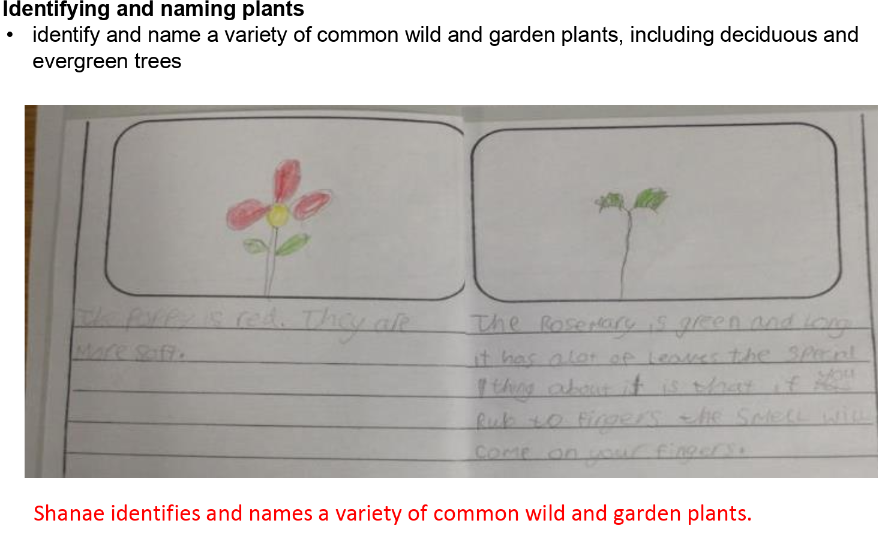 Identifying and naming plants
• identify and name a variety of common wild and garden plants, including deciduous and
evergreen trees
The Poppy is red. They are
More soft.
The Rosemary is green and long
it has alot of leaves the
thing about it is that if you
Rub to fingers the smell will
come on your fingers.
Shanae identifies and names a variety of common wild and garden plants.